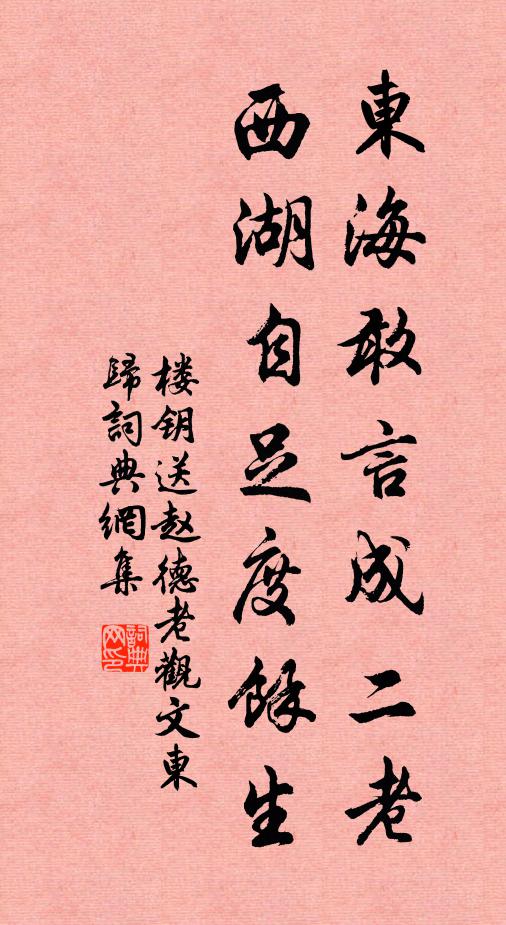 東海敢言成二老
西湖自足度餘生
楼钥送赵德老觀文東
歸詞典網集
詞典网印